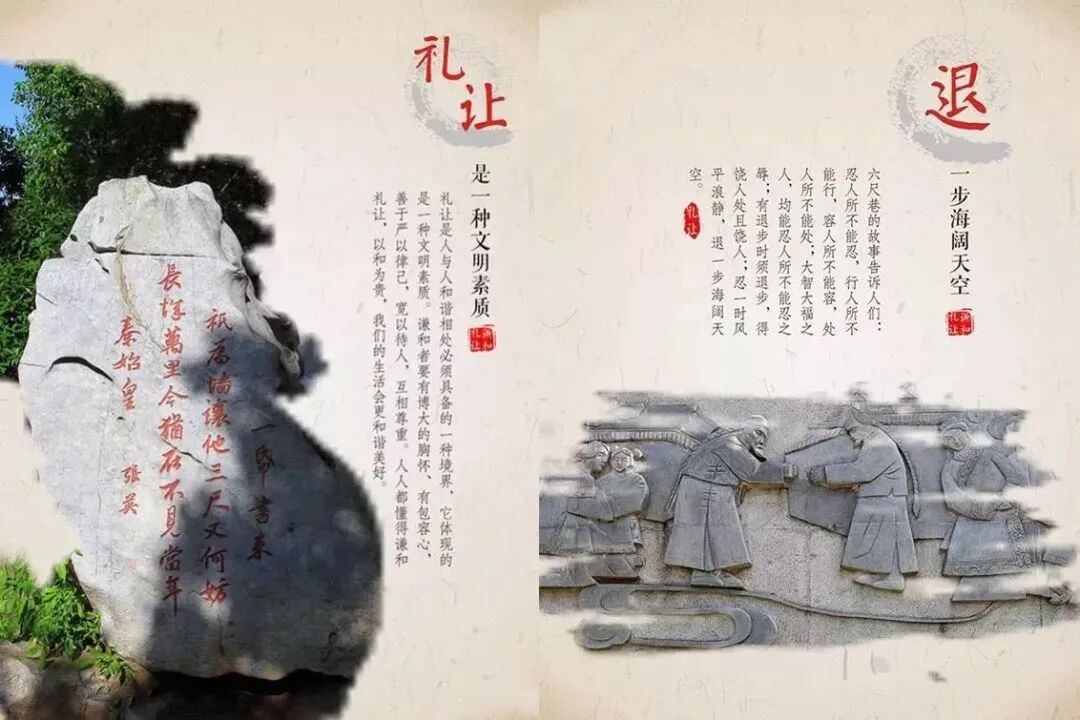 礼让
是一种文明素质
谦和礼让
礼让是人与人和谐相处必须具备的一种境界，它体现的
是一种文明素质。谦和者要有博大的胸怀、有包容心，
善于严以律己，宽以待人，互相尊重。人人都懂得谦和
礼让，以和为贵，我们的生活会更和谐美好。
一帋書来
祇為墙讓他三尺又何妨
長城萬里今猶在不見當年
秦始皇 張英
退
一步海阔天空
谦和礼让
六尺巷的故事告诉人们：
忍人所不能忍，行人所不
能行，容人所不能容，处
人所不能处；大智大福之
人，均能忍人所不能忍之
辱；有退步时须退步，得
饶人处且饶人；忍一时风
平浪静，退一步海阔天
空。
礼让